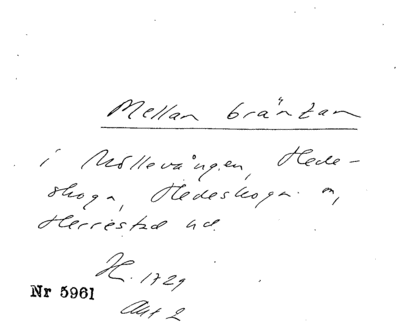 Mellan bräntan
i Möllevången, Hede-
skoga, Hedeskoga sn,
Herrestad hd.
H. 1729
Nr 5961
Akt 2